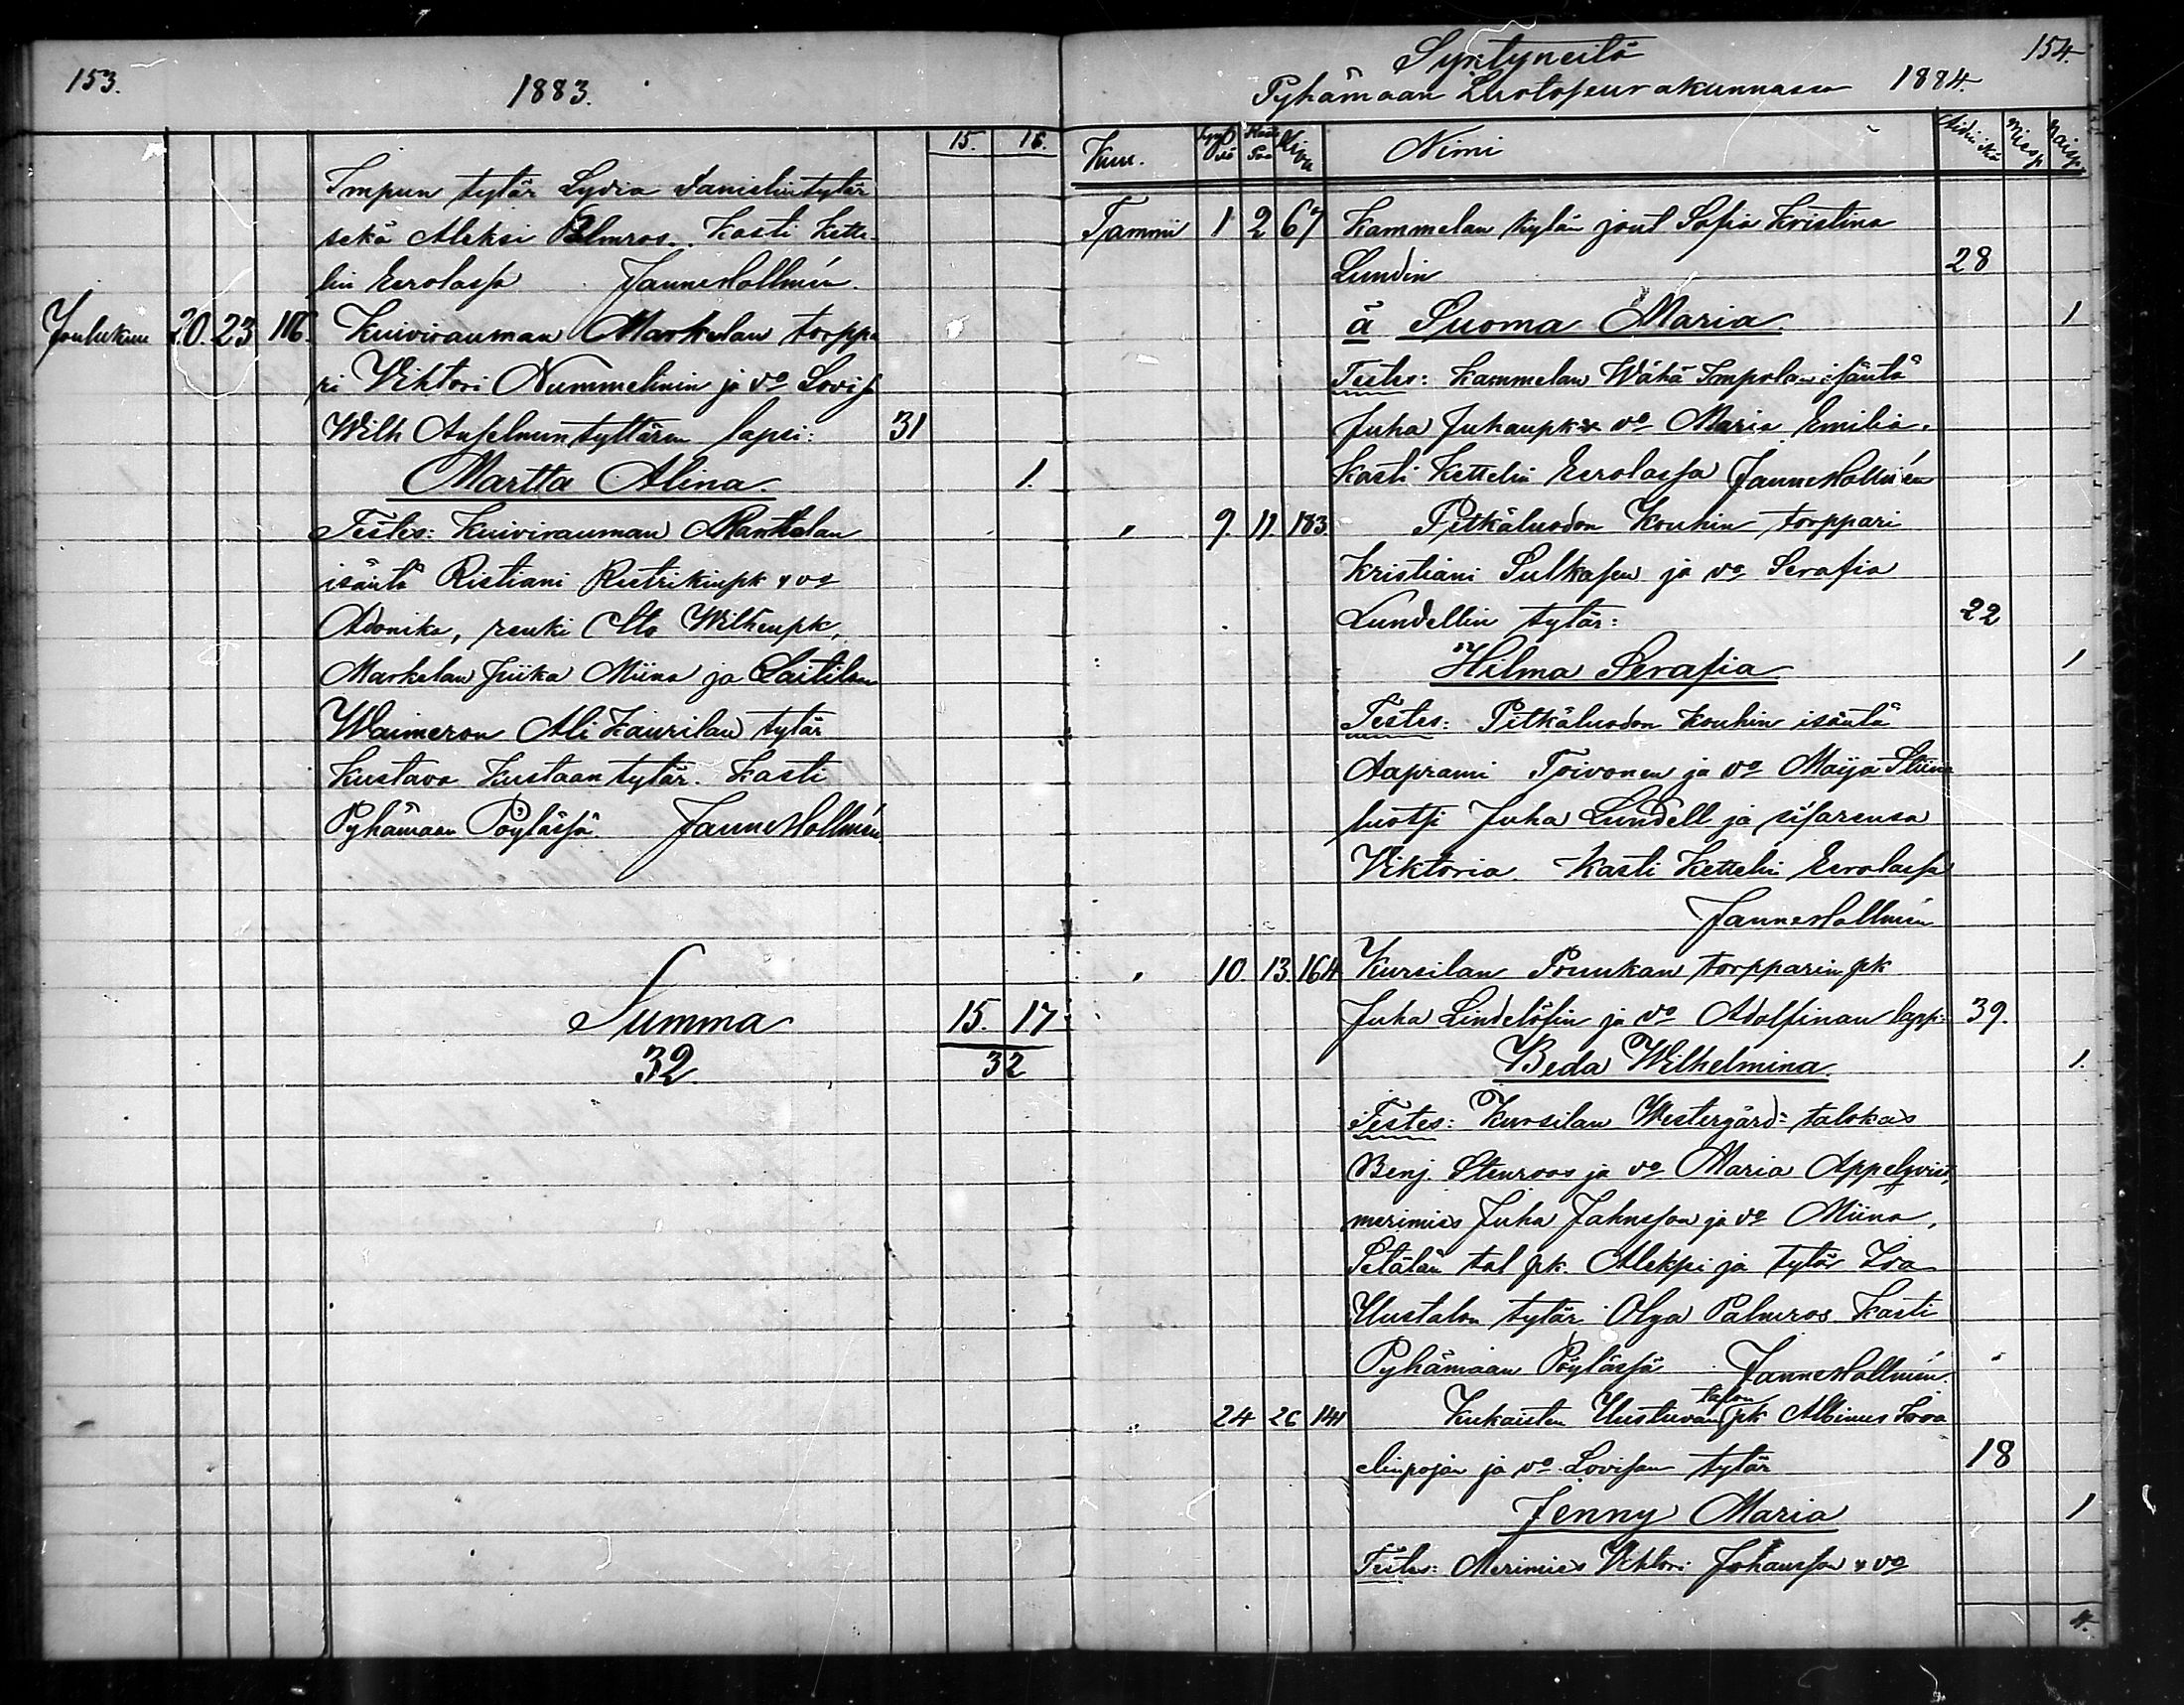 153.
1883.
15. 16.
Impun tytär Lydia Danielintytär
sekä Aleksi Palmros. Kasti Kette-
lin Eerolassa Janne Hollmén.
Joulukuu 20. 23 116. Kuivirauman Markulan torppa
ri Vihtori Nummelinin ja vo Lovisa
Wilh Anselmintyttären lapsi: 31
Martta Alina. 1.
Testes: Kuivirauman Markulan
isäntä Ristiani Rietrikinpk & vo
Adonika, renki Otto Wilh:npk,
Markulan piika Miina ja Laitilan
Waimeron Ali Kaurilan tytär
Kustava Kustaan tytär. Kasti
Pyhämaan Pöylässä Janne Hollmén
Summa 15. 17
32 32
154.
Syntyneitä
Pyhämaan Luotoseurakunnassa 1884.
Kuu. Nimi Äidin ikä Miesp Naisp.
Tammi 1 2 67 Kammelan kylän jout Sofia Kristina
Lundin 28
ä Suoma Maria. 1
Testes: Kammelan Wähä Impolan isäntä
Juha Juhanpk & vo Maria Emilia.
Kasti Kettelin Eerolassa Janne Hollmén
" 9. 11. 183. Pitkäluodon Kouhin torppari
Kristiani Sulkasen ja vo Serafia
Lundellin tytär: 22
Hilma Serafia 1
Testes: Pitkäluodon Kouhin isäntä
Aaprami Toivonen ja vo Maija Stiina
luotsi Juha Lundell ja sisarensa
Viktoria. Kasti Kettelin Eerolassa
Janne Hollmén
" 10. 13. 164 Kursilan Pruukan torpparin pk
Juha Lindelöfin ja vo Adolfinan laps: 39.
Beda Wilhelmina. 1.
Testes: Kursilan Westergård: talokas
Benj. Stenroos ja vo Maria Appelqvist,
merimies Juha Jahnsson ja vo Miina,
Setälän tal pk. Aleksi ja tytär Ida
Uustalon tytär Olga Palmros. Kasti
Pyhämaan Pöylässä Janne Hollmén.
" 24 26 141 Kukaisten Uustuvan talon pk Albinus
elinpojan ja vo Lovisan tytär 18
Jenny Maria 1
Testes: Merimies Vihtori Johansson & vo
4.